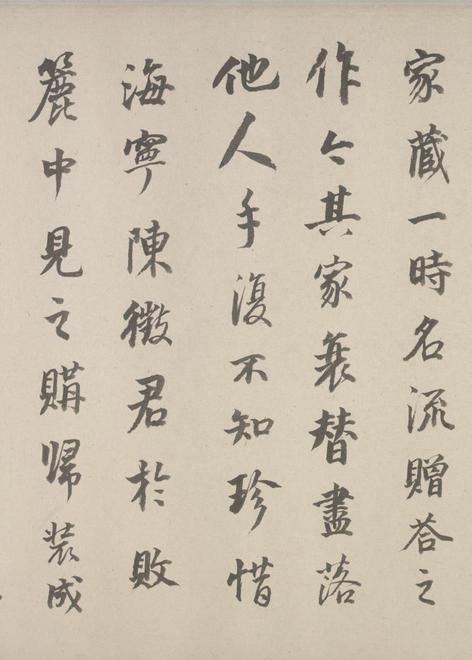 家藏一時名流贈荅之
作今其家衰替盡落
他人手復不知珍惜
海寧陳徵君於敗
簏中見之購歸裝成